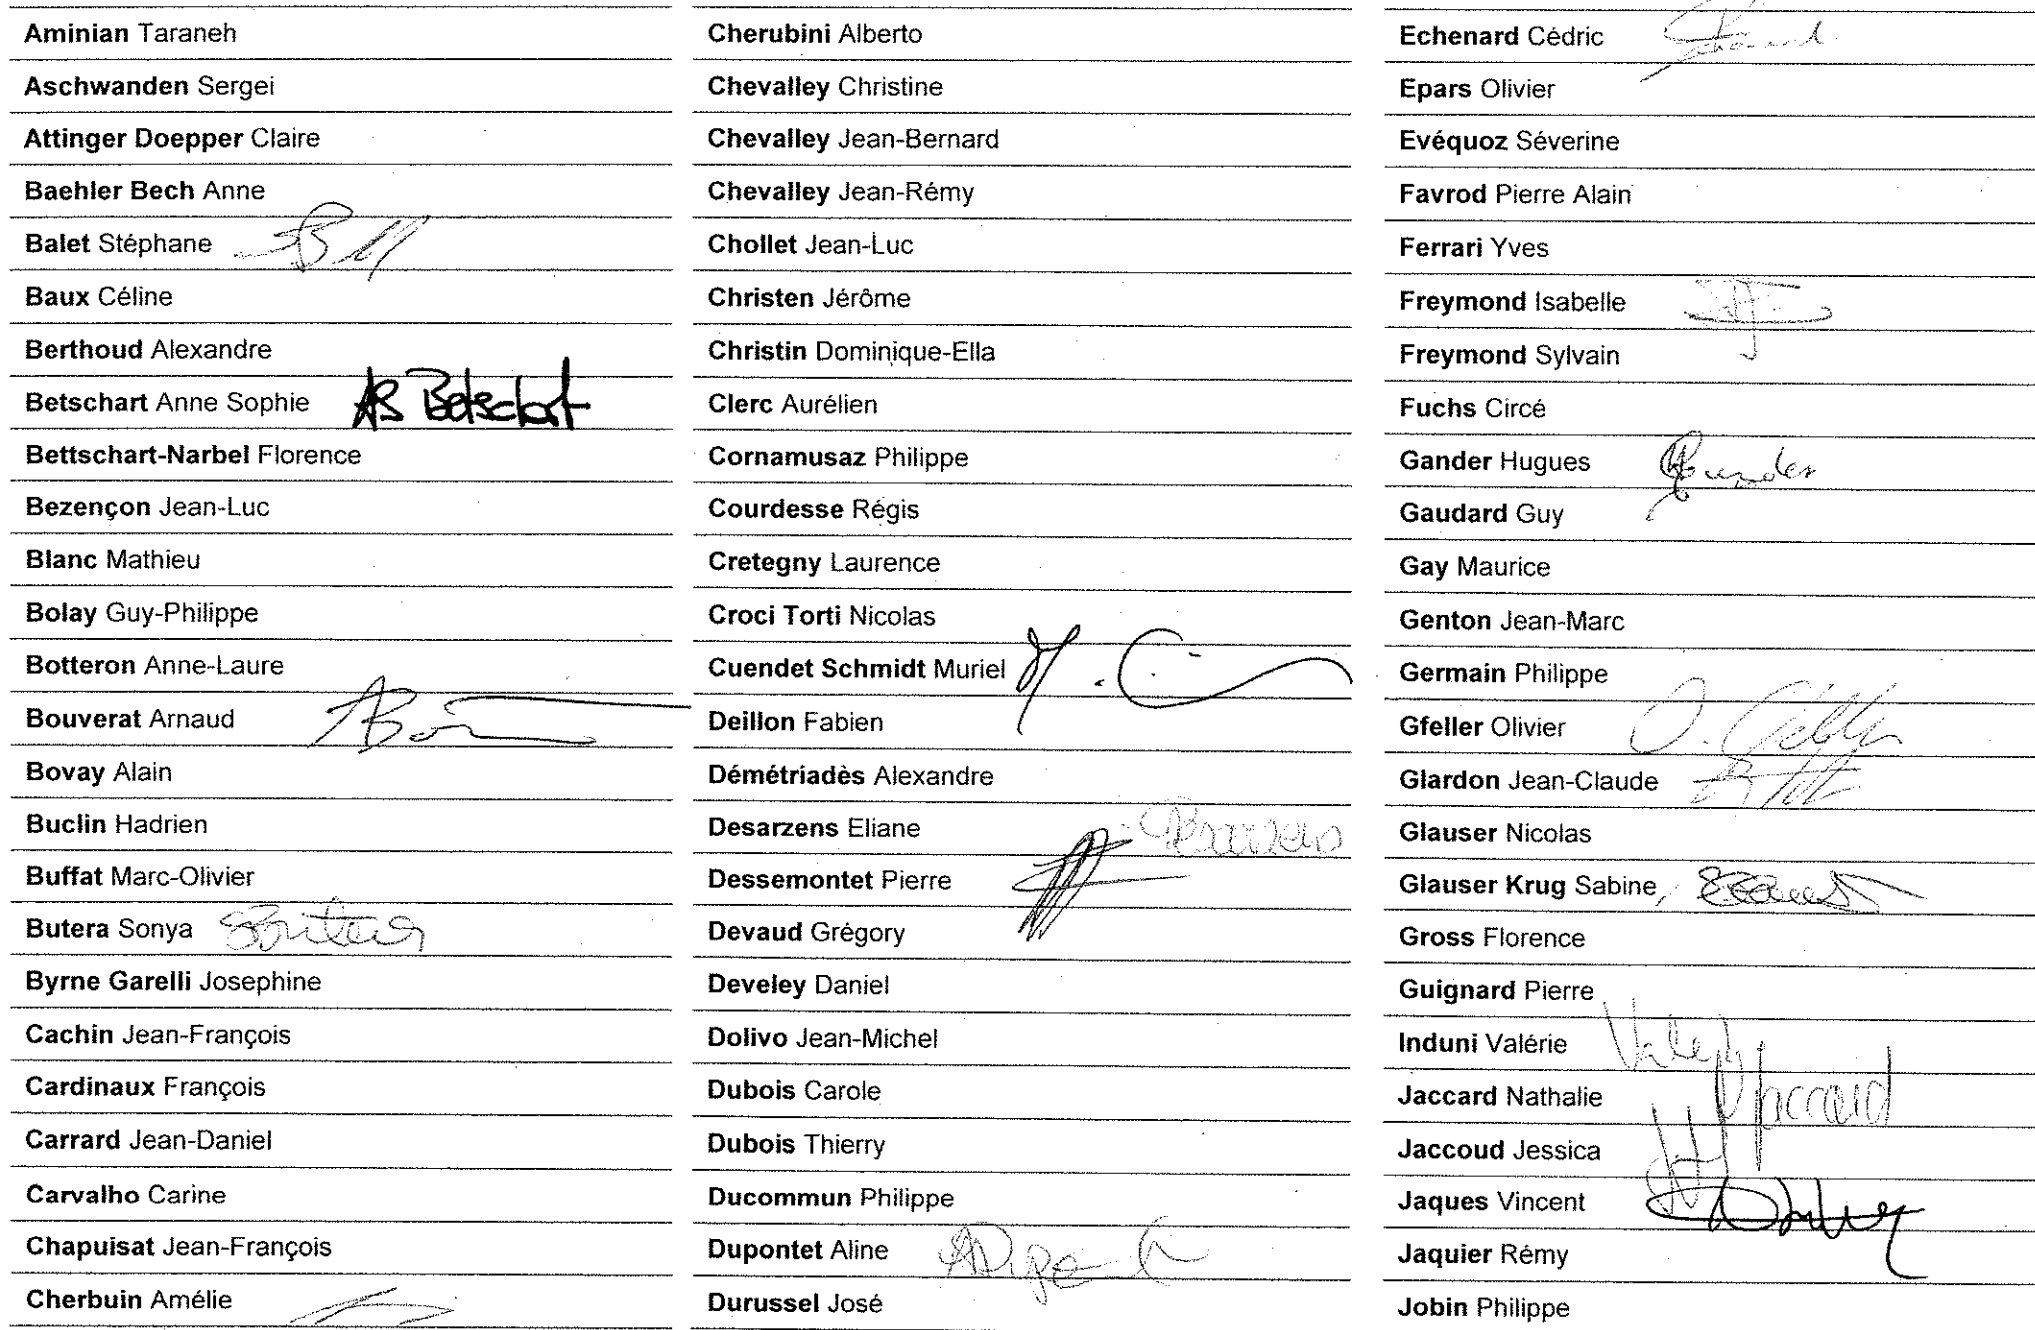 Aminian Taraneh
Aschwanden Sergei
Attinger Doepper Claire
Baehler Bech Anne
Balet Stéphane
Baux Céline
Berthoud Alexandre
Betschart Anne Sophie AS Betschart
Bettschart-Narbel Florence
Bezençon Jean-Luc
Blanc Mathieu
Bolay Guy-Philippe
Botteron Anne-Laure
Bouverat Arnaud
Bovay Alain
Buclin Hadrien
Buffat Marc-Olivier
Butera Sonya
Byrne Garelli Josephine
Cachin Jean-François
Cardinaux François
Carrard Jean-Daniel
Carvalho Carine
Chapuisat Jean-François
Cherbuin Amélie
Cherubini Alberto
Chevalley Christine
Chevalley Jean-Bernard
Chevalley Jean-Rémy
Chollet Jean-Luc
Christen Jérôme
Christin Dominique-Ella
Clerc Aurélien
Cornamusaz Philippe
Courdesse Régis
Cretegny Laurence
Croci Torti Nicolas
Cuendet Schmidt Muriel
Deillon Fabien
Démétriadès Alexandre
Desarzens Eliane
Dessemontet Pierre
Devaud Grégory
Develey Daniel
Dolivo Jean-Michel
Dubois Carole
Dubois Thierry
Ducommun Philippe
Dupontet Aline
Durussel José
Echenard Cédric
Epars Olivier
Evéquoz Séverine
Favrod Pierre Alain
Ferrari Yves
Freymond Isabelle
Freymond Sylvain
Fuchs Circé
Gander Hugues
Gaudard Guy
Gay Maurice
Genton Jean-Marc
Germain Philippe
Gfeller Olivier
Glardon Jean-Claude
Glauser Nicolas
Glauser Krug Sabine
Gross Florence
Guignard Pierre
Induni Valérie
Jaccard Nathalie Jaccard
Jaccoud Jessica
Jaques Vincent
Jaquier Rémy
Jobin Philippe